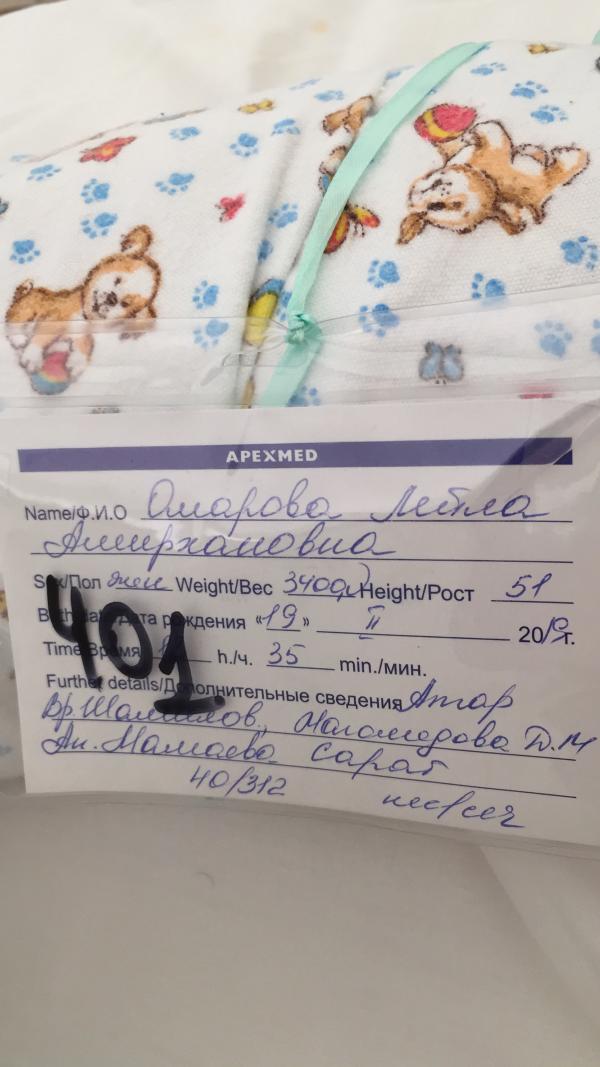 APEXMED
Name/Ф.И.О Омарова Лейла
Амирхановна
Sex/Пол жен Weight/Вес 3400 Height/Рост 51
Birth date/Дата рождения «19» II 2019г.
Time/Время h./ч. 35 min./мин.
401
Further details/Дополнительные сведения Апгар
Вр. Магомедова Д.М
Ак. Мамаева Сарат
40/312